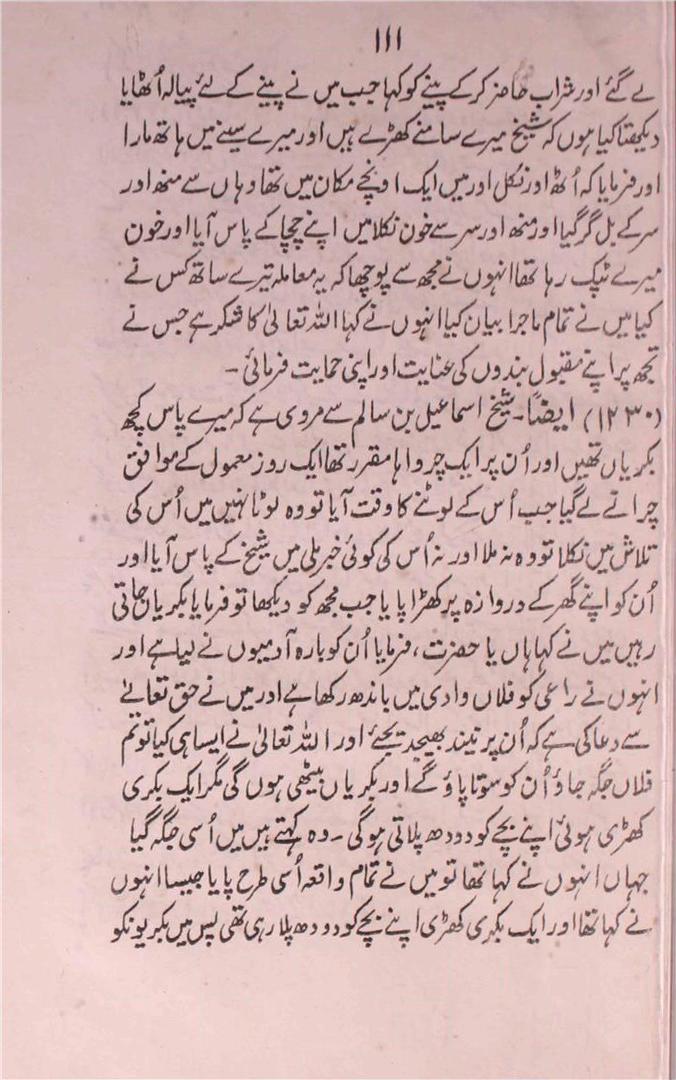 ۱۱۱
لے گئے اور شراب حاضر کرکے پینے کو کہا جب میں نے پینے کے لئے پیالہ اُٹھایا
دیکھتا کیا ہوں کہ شیخ میرے سامنے کھڑے ہیں اور میرے سینے میں ہاتھ مارا
اور فرمایا کہ اُٹھ اور نکل اور میں ایک اونچے مکان میں تھا وہاں سے منھ اور
سر کے بل گر گیا اور منھ اور سر سے خون نکلا میں اپنے چچا کے پاس آیا اور خون
میرے ٹپک رہا تھا انہوں نے مجھ سے پوچھا کہ یہ معاملہ تیرے ساتھ کس نے
کیا میں نے تمام ماجرا بیان کیا انہوں نے کہا اللہ تعالیٰ کا شکر ہے جس نے
تجھ پر اپنے مقبول بندوں کی عنایت اور اپنی حمایت فرمائی ۔
(۱۲۳۰) ایضاً ۔ شیخ اسماعیل بن سالم سے مروی ہے کہ میرے پاس کچھ
بکریاں تھیں اور اُن پر ایک چرواہا مقرر تھا ایک روز معمول کے موافق
چرانے لے گیا جب اُس کے لوٹنے کا وقت آیا تو وہ لوٹا نہیں میں اُس کی
تلاش میں نکلا تو وہ نہ ملا اور نہ اُس کی کوئی خبر ملی میں شیخ کے پاس آیا اور
اُن کو اپنے گھر کے دروازہ پر کھڑا پایا جب مجھ کو دیکھا تو فرمایا بکریاں جاتی
رہیں میں نے کہا ہاں یا حضرت، فرمایا اُن کو بارہ آدمیوں نے لیا ہے اور
انہوں نے راعی کو فلاں وادی میں باندھ رکھا ہے اور میں نے حق تعالےٰ
سے دعا کی ہے کہ اُن پر نیند بھیجدیجئے اور اللہ تعالیٰ نے ایسا ہی کیا تو تم
فلاں جگہ جاؤ اُن کو سوتا پاؤ گے اور بکریاں بیٹھی ہوں گی مگر ایک بکری
کھڑی ہوئی اپنے بچے کو دودھ پلاتی ہوگی ۔ وہ کہتے ہیں میں اُسی جگہ گیا
جہاں انہوں نے کہا تھا تو میں نے تمام واقعہ اُسی طرح پایا جیسا انہوں
نے کہا تھا اور ایک بکری کھڑی اپنے بچے کو دودھ پلا رہی تھی پس میں بکریونکو